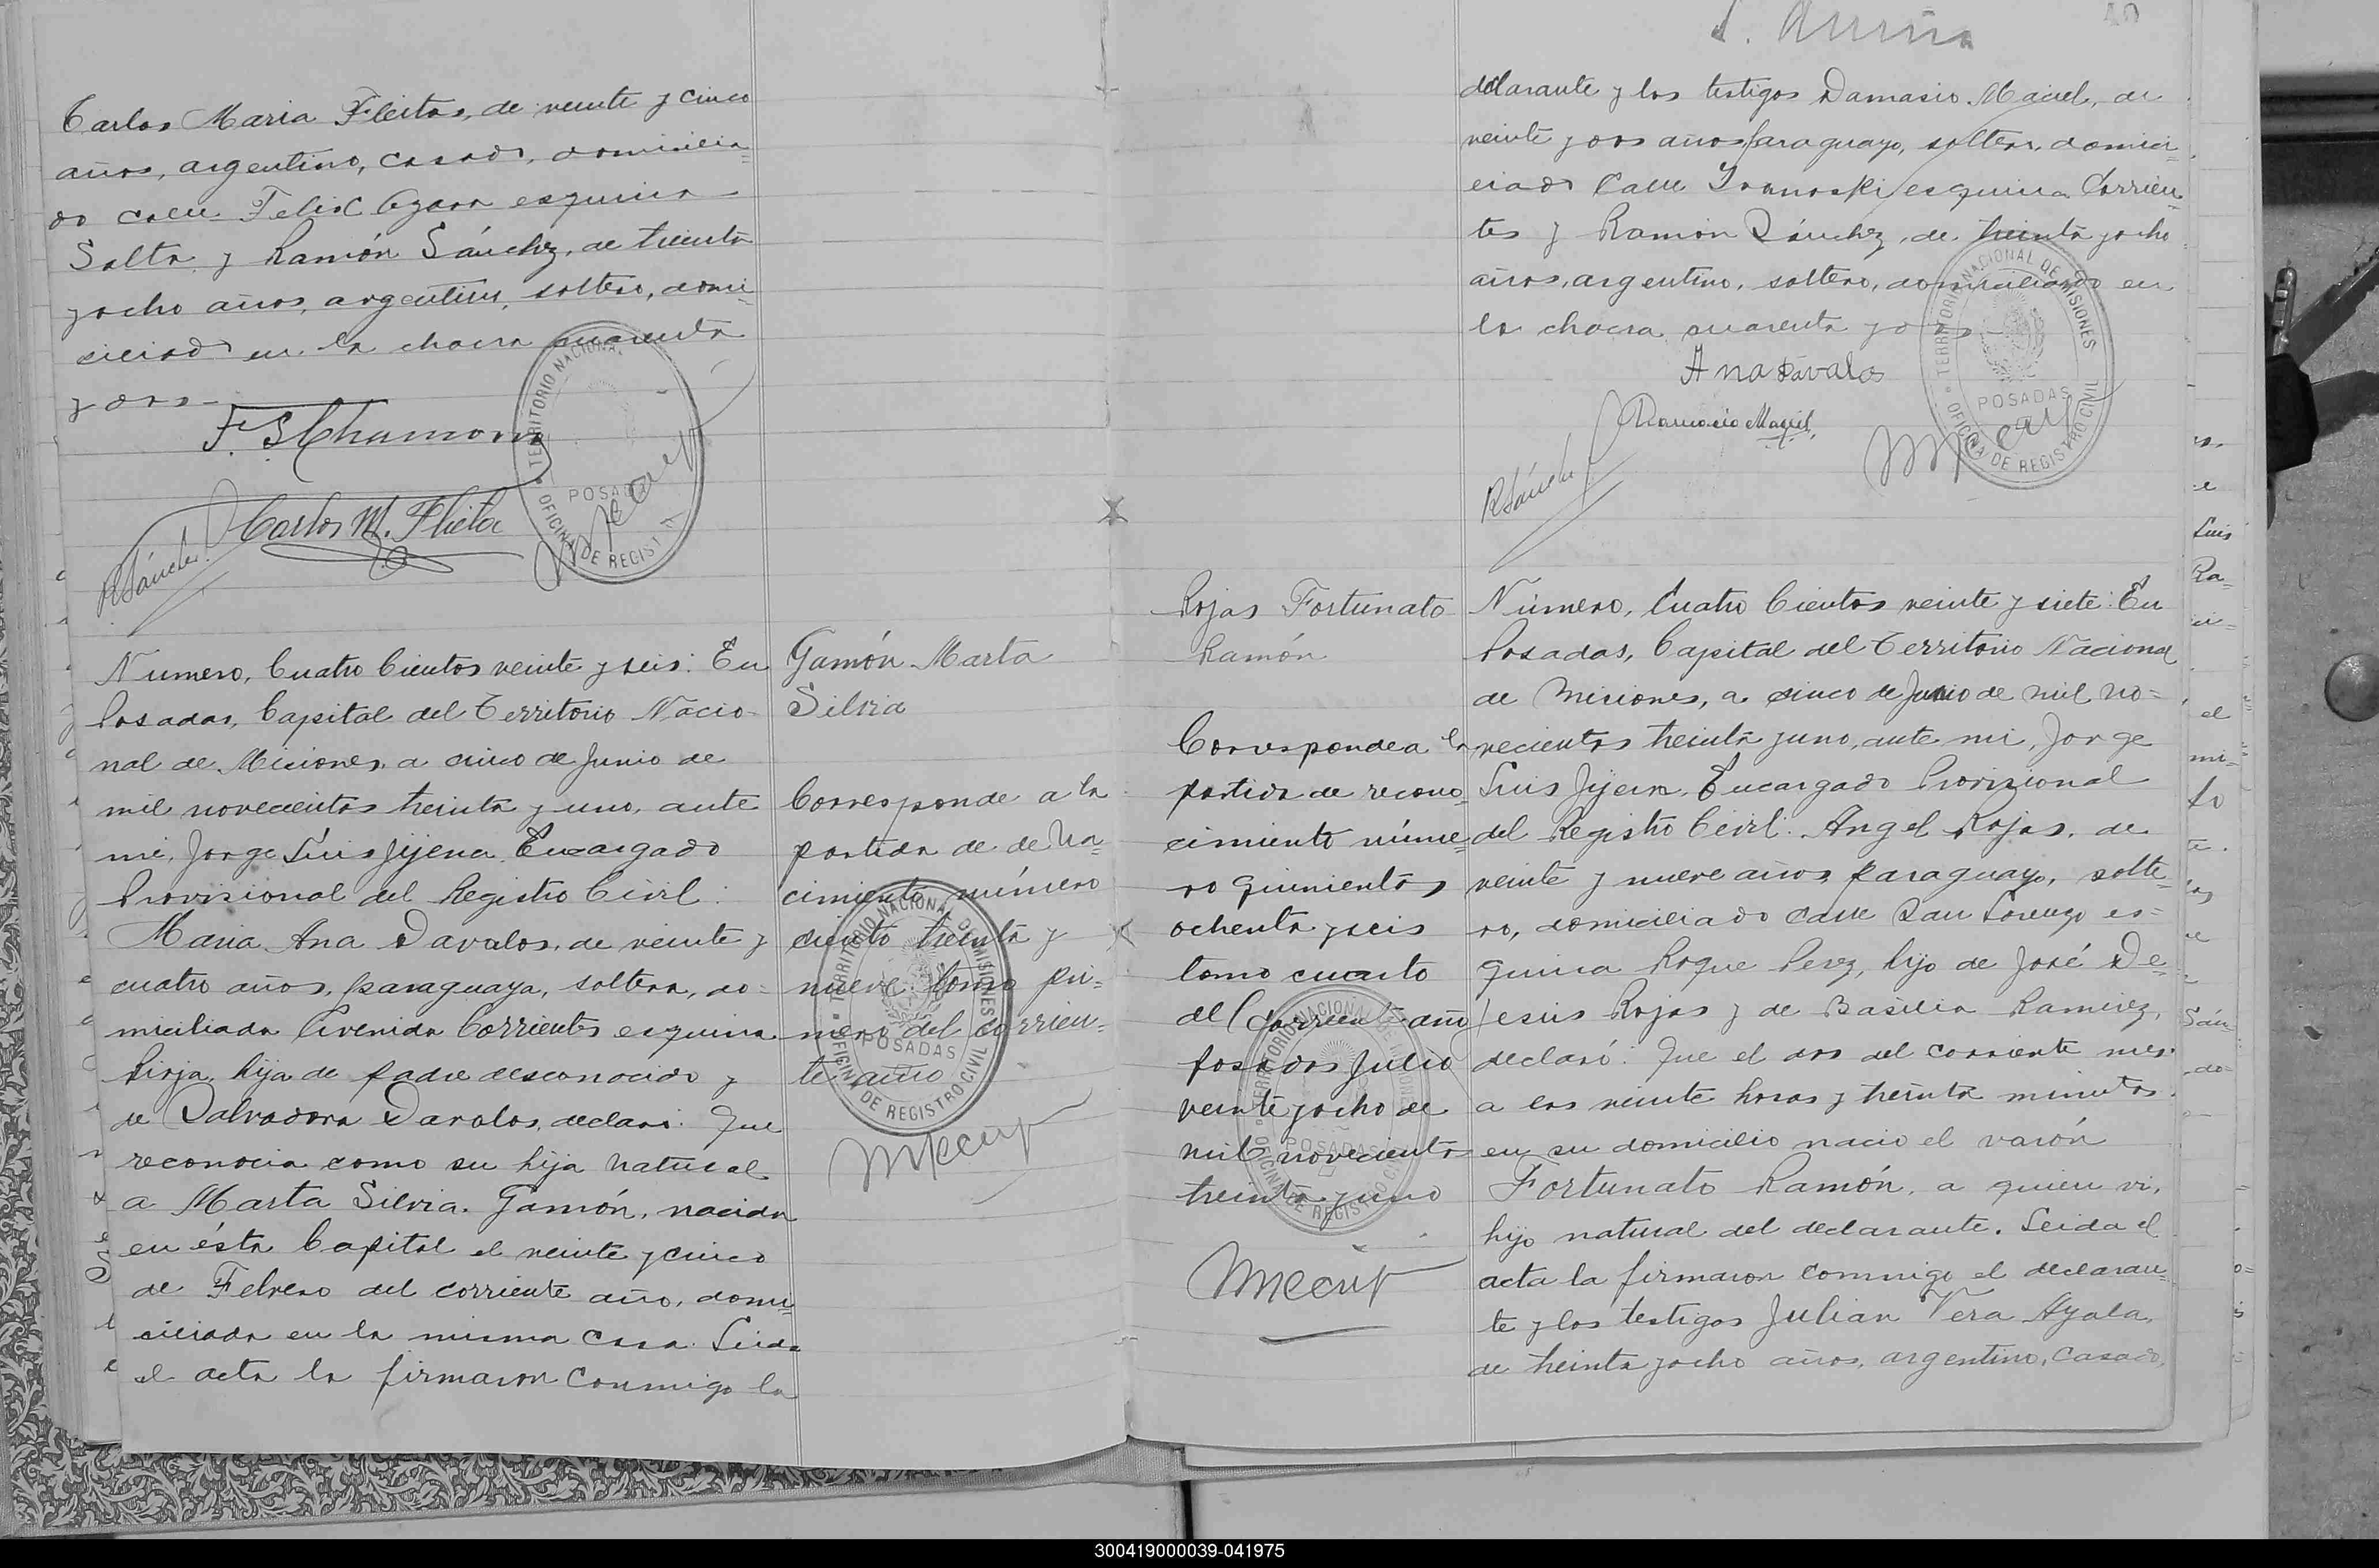 Carlos Maria Fleitas, de veinte y cinco
años, argentino, casado, domicilia=
do calle Felix Azara esquina
Salta y Ramón Sánchez, de treinta
y ocho años, argentino, soltero, domi=
ciliado en la chacra cuarenta
y dos
F. S. Chamorro
Carlos M. Fleita
RSánchez
TERRITORIO NACIONAL
POSADAS
OFICINA DE REGISTRO
Número, Cuatro Cientos veinte y seis: En
Posadas, Capital del Territorio Nacio-
nal de Misiones, a cinco de Junio de
mil novecientos treinta y uno, ante
mi, Jorge Luis Jijena, Encargado
Provisional del Registro Civil:
Maria Ana Davalos, de veinte y
cuatro años, paraguaya, soltera, do=
miciliada Avenida Corrientes esquina
Rioja, hija de padre desconocido y
de Salvadora Davalos, declaró: Que
reconocia como su hija natural
a Marta Silvia Gamón, nacida
en ésta Capital el veinte y cinco
de Febrero del corriente año, domi=
ciliada en la misma casa. Leida
el acta la firmaron conmigo la
Gamón Marta
Silvia
Corresponde a la
partida de de Na=
cimiento número
ciento treinta y
nueve tomo pri=
mero del corrien=
te año
TERRITORIO NACIONAL DE MISIONES
POSADAS
OFICINA DE REGISTRO CIVIL
declarante y los testigos Damasio Maciel, de
veinte y dos años, paraguayo, soltero, domici=
liado Calle esquina Corrien=
tes y Ramón Sánchez, de treinta y ocho
años, argentino, soltero, domiciliado en
la chacra cuarenta y dos
Ana Davalos
Damasio Maciel
RSánchez
TERRITORIO NACIONAL DE MISIONES
POSADAS
OFICINA DE REGISTRO CIVIL
Rojas Fortunato
Ramón
Corresponde a la
partida de recono=
cimiento núme=
ro quinientos
ochenta y seis
tomo cuarto
del corriente año
Posadas Julio
veinte y ocho de
mil novecientos
treinta y uno
TERRITORIO NACIONAL DE MISIONES
POSADAS
OFICINA DE REGISTRO CIVIL
Número, Cuatro Cientos veinte y siete: En
Posadas, Capital del Territorio Nacional
de Misiones, a cinco de Junio de mil no=
vecientos treinta y uno, ante mi, Jorge
Luis Jijena, Encargado Provisional
del Registro Civil: Angel Rojas, de
veinte y nueve años, paraguayo, solte=
ro, domiciliado calle San Lorenzo es=
quina Roque Perez, hijo de José De
Jesus Rojas y de Basilia Ramirez,
declaró: Que el dos del corriente mes
a las veinte horas y treinta minutos
en su domicilio nacio el varón
Fortunato Ramón, a quien vi,
hijo natural del declarante. Leida el
acta la firmaron conmigo el declaran=
te y los testigos Julian Vera Ayala,
de treinta y ocho años, argentino, casado,
300419000039-041975